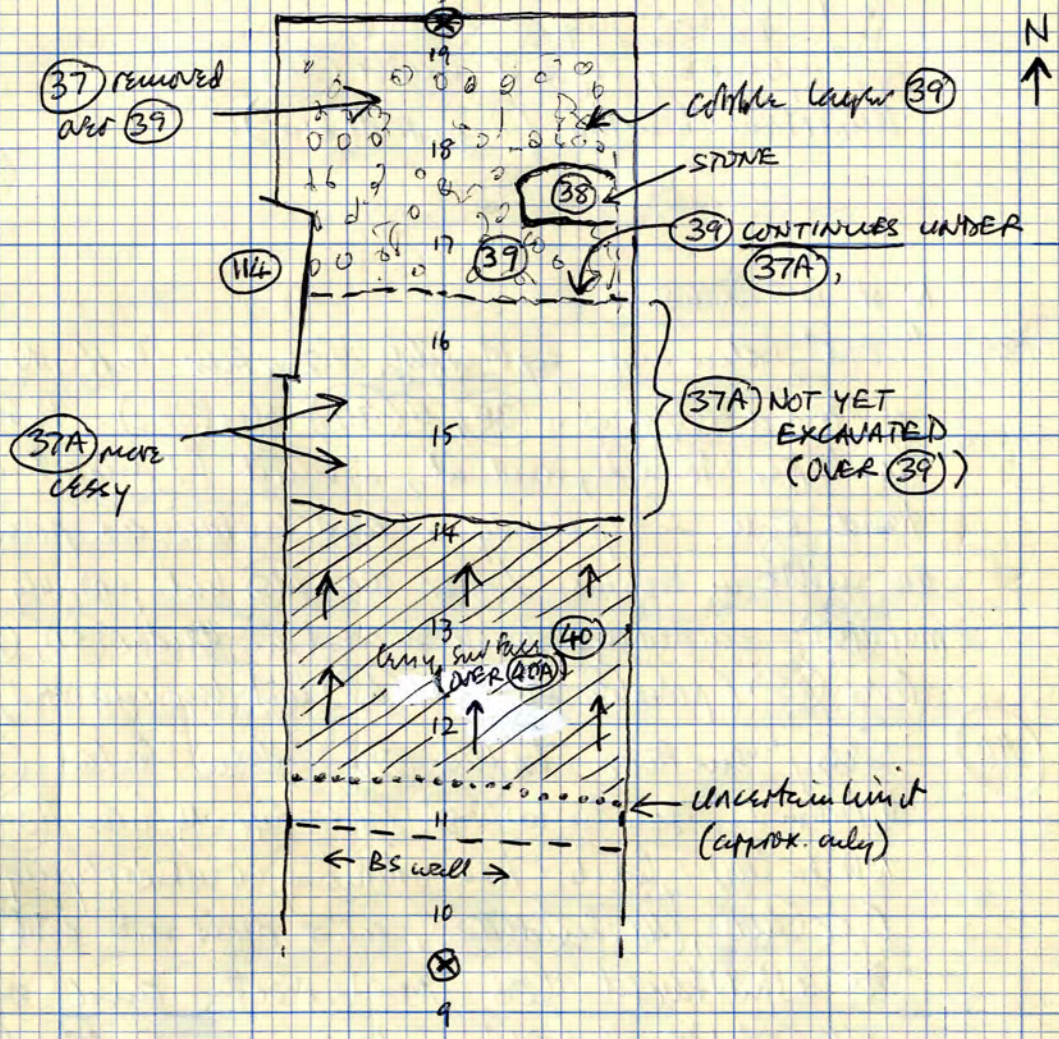 N
19
37 removed
over 39
cobble layer 39
18
STONE
38
39 CONTINUES UNDER
37A,
17
39
114
16
37A NOT YET
EXCAVATED
(OVER 39)
15
37A more
cessy
14
13
surface 40
(OVER 40A)
12
Uncertain limit
(approx. only)
11
← BS wall →
10
9